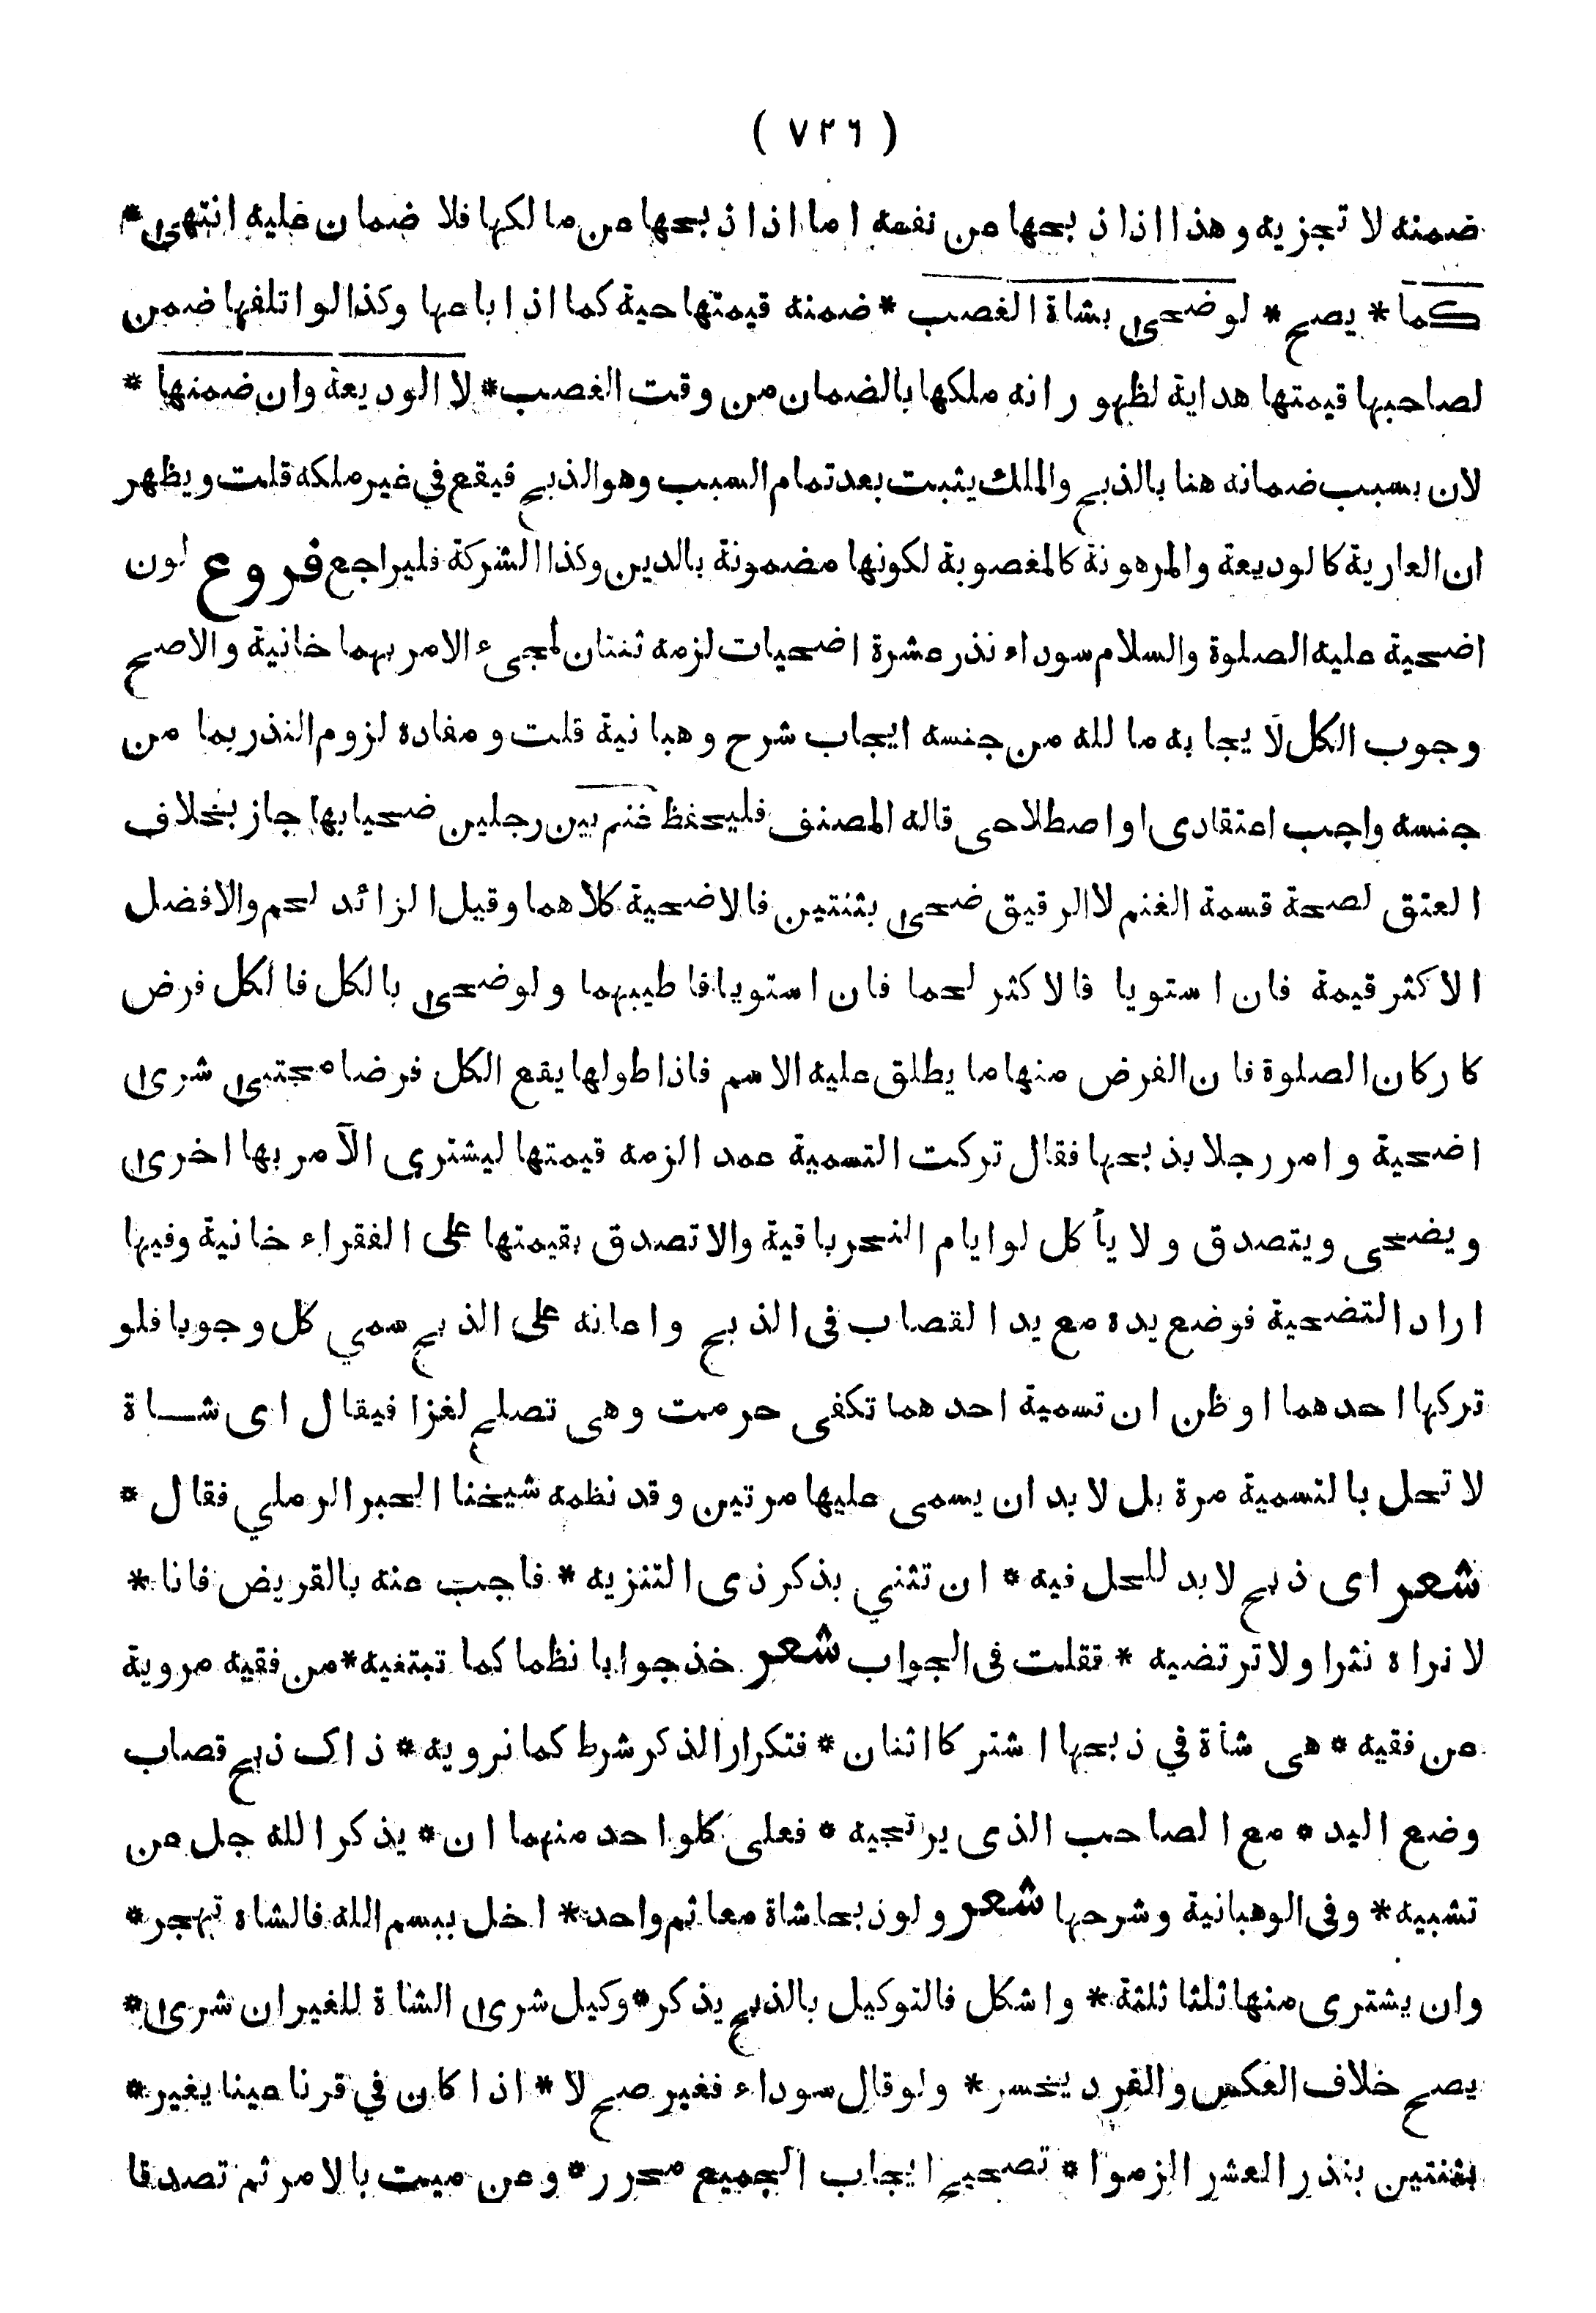 ( ٧٢٦ )
ضمنه لا تجزيه وهذا اذا ذبحها عن نفسه اما اذا ذبحها عن مالكها فلا ضمان عليه انتهى *
كما * يصح * لو ضحى بشاة الغصب * ضمنه قيمتها حية كما اذا باعها وكذا لو اتلفها ضمن
لصاحبها قيمتها هداية لظهور انه ملكها بالضمان من وقت الغصب * لا الوديعة وان ضمنها *
لان بسبب ضمانه هنا بالذبح والملك يثبت بعد تمام السبب وهو الذبح فيقع في غير ملكه قلت ويظهر
ان العارية كالوديعة والمرهونة كالمغصوبة لكونها مضمونة بالدين وكذا الشركة فليراجع فروع لون
اضحية عليه الصلوة والسلام سوداء نذر عشرة اضحيات لزمه ثنتان لمجىء الامر بهما خانية والاصح
وجوب الكل لايجابه ما لله من جنسه ايجاب شرح وهبانية قلت ومفاده لزوم النذر بما من
جنسه واجب اعتقادى او اصطلاحى قاله المصنف فليحفظ غنم بين رجلين ضحيا بها جاز بخلاف
العتق لصحة قسمة الغنم لا الرقيق ضحى بثنتين فالاضحية كلاهما وقيل الزائد لحم والافضل
الاكثر قيمة فان استويا فالاكثر لحما فان استويا فاطيبهما ولو ضحى بالكل فالكل فرض
كاركان الصلوة فان الفرض منها ما يطلق عليه الاسم فاذا طولها يقع الكل فرضا مجتبى شرى
اضحية وامر رجلا بذبحها فقال تركت التسمية عمدا لزمه قيمتها ليشترى الآمر بها اخرى
ويضحى ويتصدق ولا يأكل لو ايام النحر باقية والا تصدق بقيمتها على الفقراء خانية وفيها
اراد التضحية فوضع يده مع يد القصاب فى الذبح واعانه على الذبح سمي كل وجوبا فلو
تركها احدهما او ظن ان تسمية احدهما تكفى حرمت وهى تصلح لغزا فيقال اى شاة
لا تحل بالتسمية مرة بل لابد ان يسمى عليها مرتين وقد نظمه شيخنا الحبر الرملي فقال *
شعر اى ذبح لابد للحل فيه * ان تثني بذكر ذى التنزيه * فاجب عنه بالقريض فانا *
لا نراه نثرا ولا ترتضيه * فقلت فى الجواب شعر خذ جوابا نظما كما تبتغيه * من فقيه مروية
عن فقيه * هى شأة في ذبحها اشتركا اثنان * فتكرار الذكر شرط كما نرويه * ذاك ذبح قصاب
وضع اليد * مع الصاحب الذى يرتجيه * فعلى كلواحد منهما ان * يذكر الله جل عن
تشبيه * وفى الوهبانية وشرحها شعر ولو ذبحا شاة معا ثم واحد * اخل ببسم الله فالشاه تهجر *
وان يشترى منها ثلثا ثلثة * واشكل فالتوكيل بالذبح يذكر * وكيل شرى الشاة للغير ان شرى *
يصح خلاف العكس والقرد يخسر * ولو قال سوداء فغير صح لا * اذا كان في قرنا عينا يغير *
بثنتين بنذر العشر الزموا * تصحيح ايجاب الجميع محرر * وعن ميت بالامر ثم تصدقا